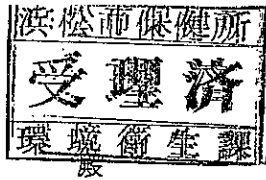 浜松市保健所
受理済
環境衛生課
殿